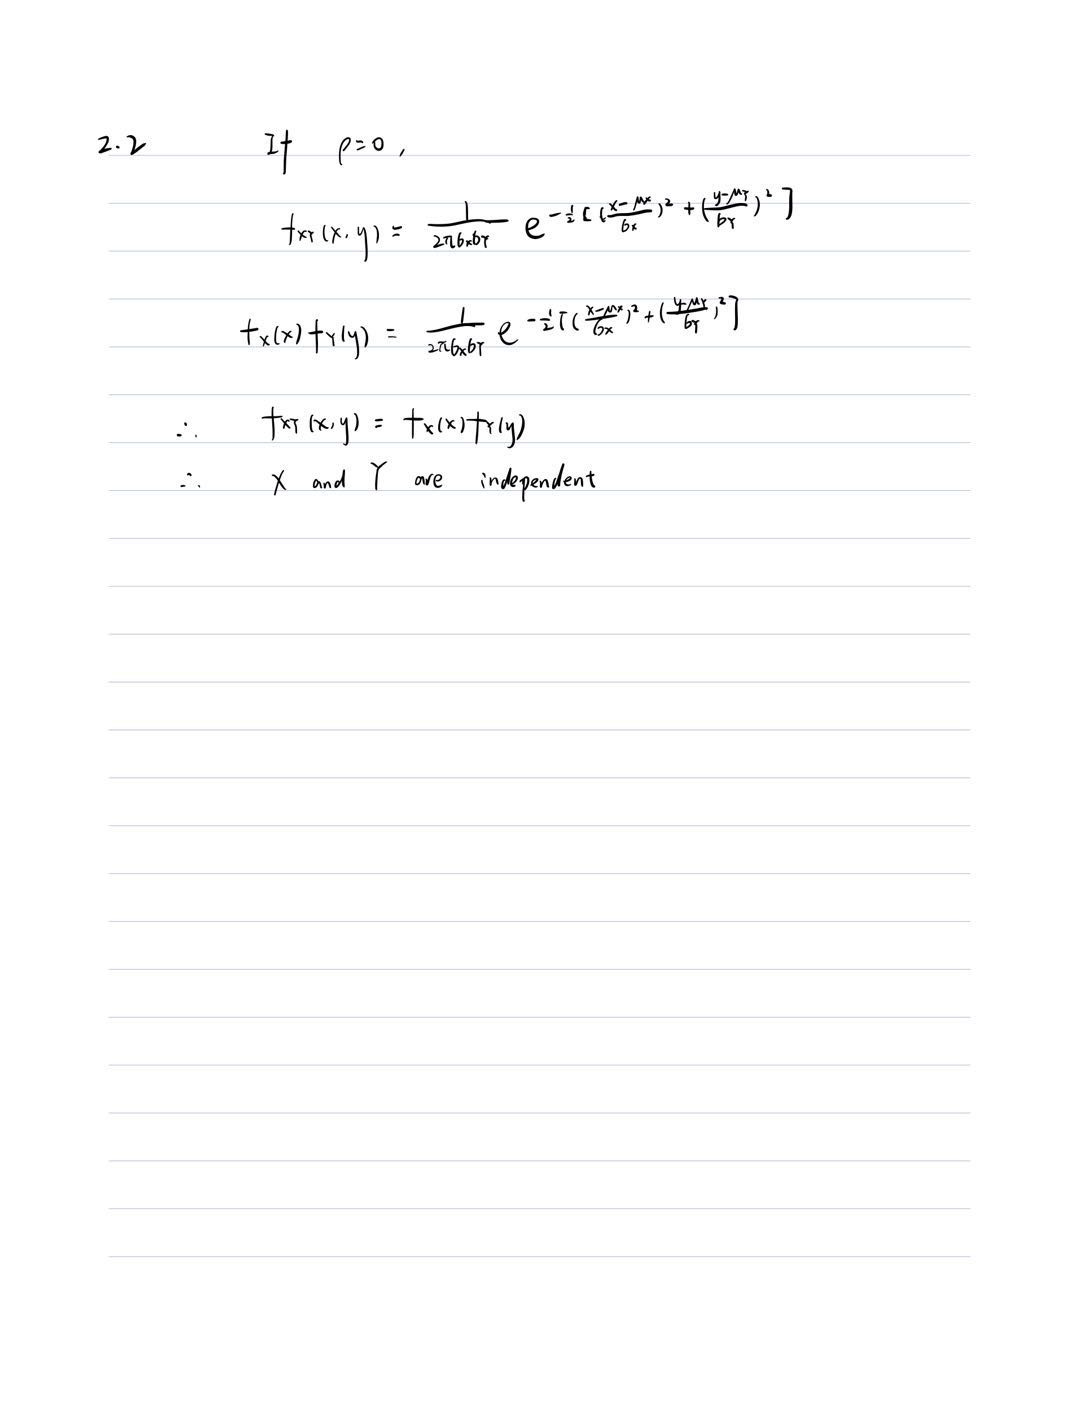 2.2 If ρ=0,
f_XY(x,y) = 1/(2πσ_Xσ_Y) e^{-1/2[((x-μ_X)/σ_X)^2 + ((y-μ_Y)/σ_Y)^2]}
f_X(x) f_Y(y) = 1/(2πσ_Xσ_Y) e^{-1/2[((x-μ_X)/σ_X)^2 + ((y-μ_Y)/σ_Y)^2]}
∴ f_XY(x,y) = f_X(x) f_Y(y)
∴ X and Y are independent